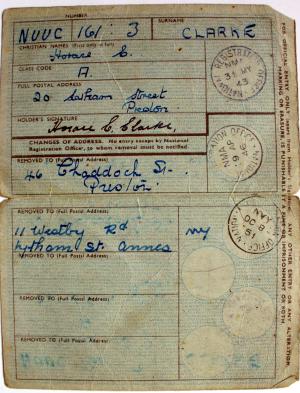 NUMBER SURNAME
NUUC 161 3 CLARKE
CHRISTIAN NAMES (First only in full)
Horace C.
CLASS CODE
A
FULL POSTAL ADDRESS
20 Street
Preston
HOLDER'S SIGNATURE
Horace C. Clarke
CHANGES OF ADDRESS. No entry except by National
Registration Officer, to whom removal must be notified
REMOVED TO (Full Postal Address)
46 Chaddock St.
Preston
REMOVED TO (Full Postal Address)
11 Westby Rd NVY
Lytham St. Annes
REMOVED TO (Full Postal Address)
REMOVED TO (Full Postal Address)
REMOVED TO (Full Postal Address)
NATIONAL REGISTRATION OFFICE
31 MY
43
ANY OTHER ENTRY OR ANY
MARKING OR ERASURE, IS PUNISHABLE BY A FINE OR
IMPRISONMENT OR BOTH
NVY
OC 8
51